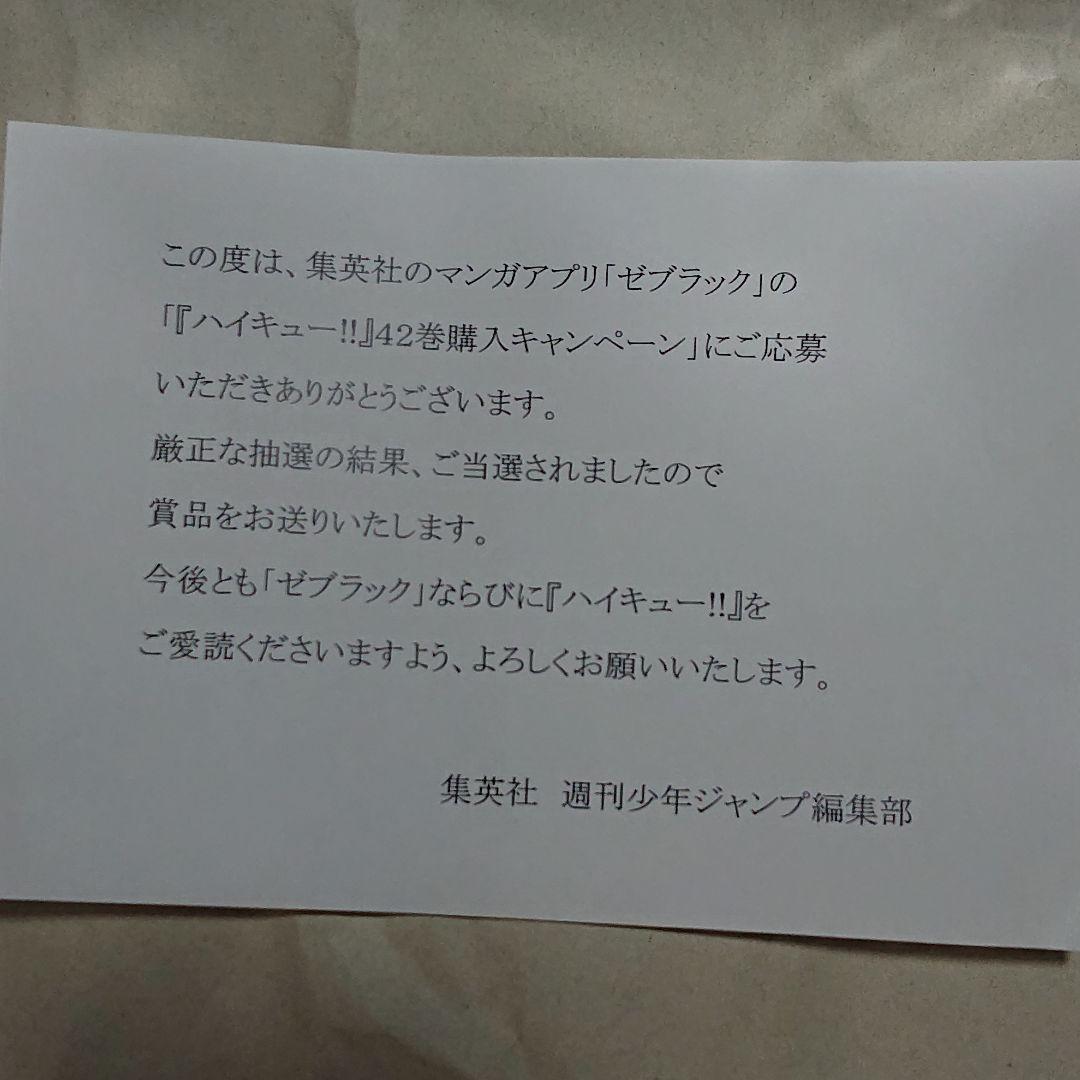 この度は、集英社のマンガアプリ「ゼブラック」の
「『ハイキュー!!』42巻購入キャンペーン」にご応募
いただきありがとうございます。
厳正な抽選の結果、ご当選されましたので
賞品をお送りいたします。
今後とも「ゼブラック」ならびに『ハイキュー!!』を
ご愛読くださいますよう、よろしくお願いいたします。
集英社　週刊少年ジャンプ編集部